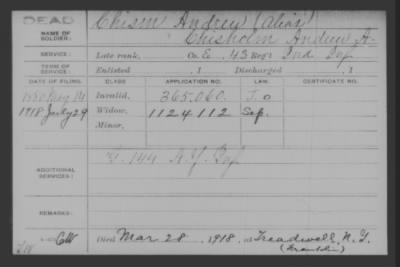 DEAD
Chism Andrew (alias)
NAME OF SOLDIER:
Chisholm Andrew A.
SERVICE:
Late rank, Co. E. 43 Reg't Ind Inf
TERM OF SERVICE:
Enlisted , 1 Discharged , 1
DATE OF FILING. CLASS APPLICATION NO. LAW. CERTIFICATE NO.
1880 May 14 Invalid, 365,060.
1918 July 29 Widow, 1124112 Sep.
Minor,
G. 144 N.Y. Inf
ADDITIONAL SERVICES:
REMARKS:
Died Mar 28, 1918, at Treadwell, N.Y.
(Franklin)